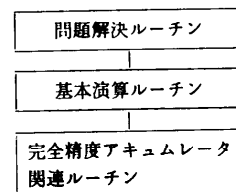 問題解決ルーチン
基本演算ルーチン
完全精度アキュムレータ
関連ルーチン